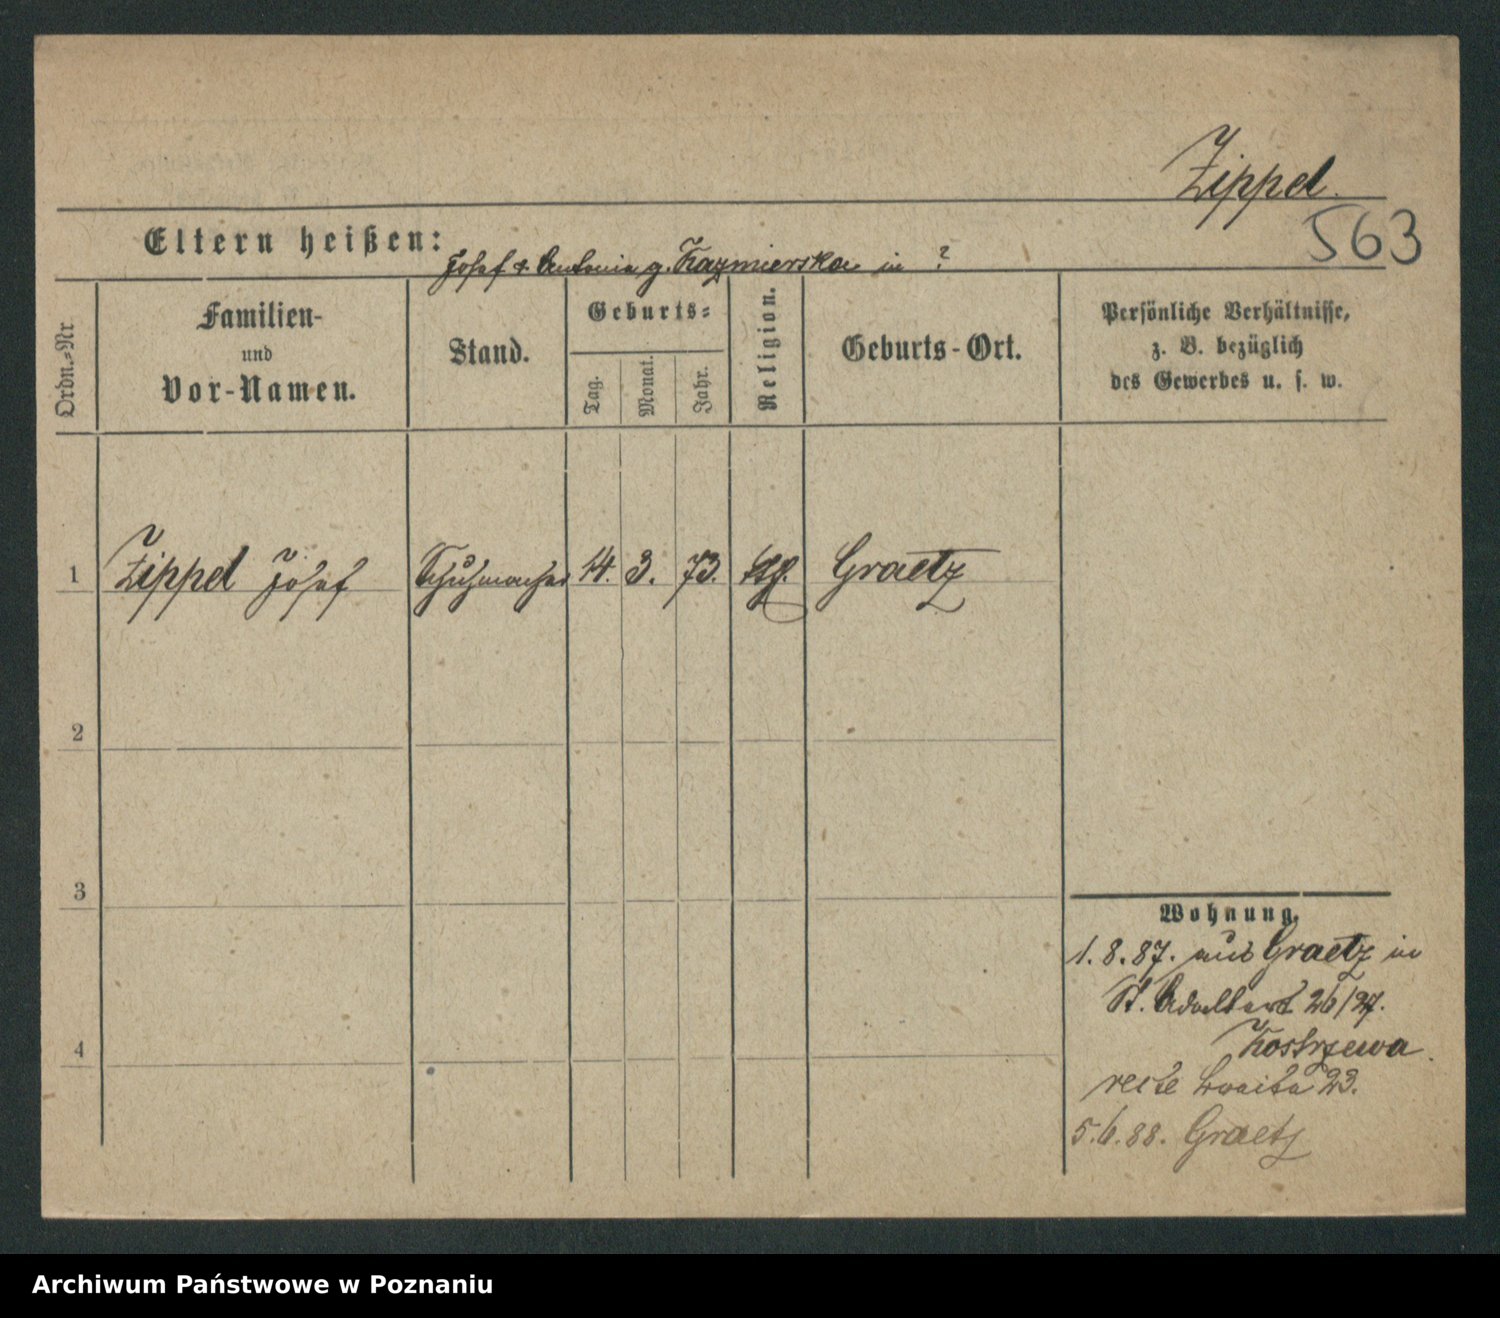 Zippel.
563
Eltern heißen: Josef & Antonia g. Kazmierska in ?
Ordn.-Nr
Familien-
und
Vor-Namen.
Stand.
Geburts-
Tag.
Monat.
Jahr.
Religion.
Geburts-Ort.
Persönliche Verhältnisse,
z. B. bezüglich
des Gewerbes u. s. w.
1 Zippel Josef Schuhmacher 14. 3. 73. Graetz
2
3
4
Wohnung.
1.8.87. aus Graetz in
St. Adalbert 26/27.
Kostrzewa.
23.
5.6.88. Graetz
Archiwum Państwowe w Poznaniu